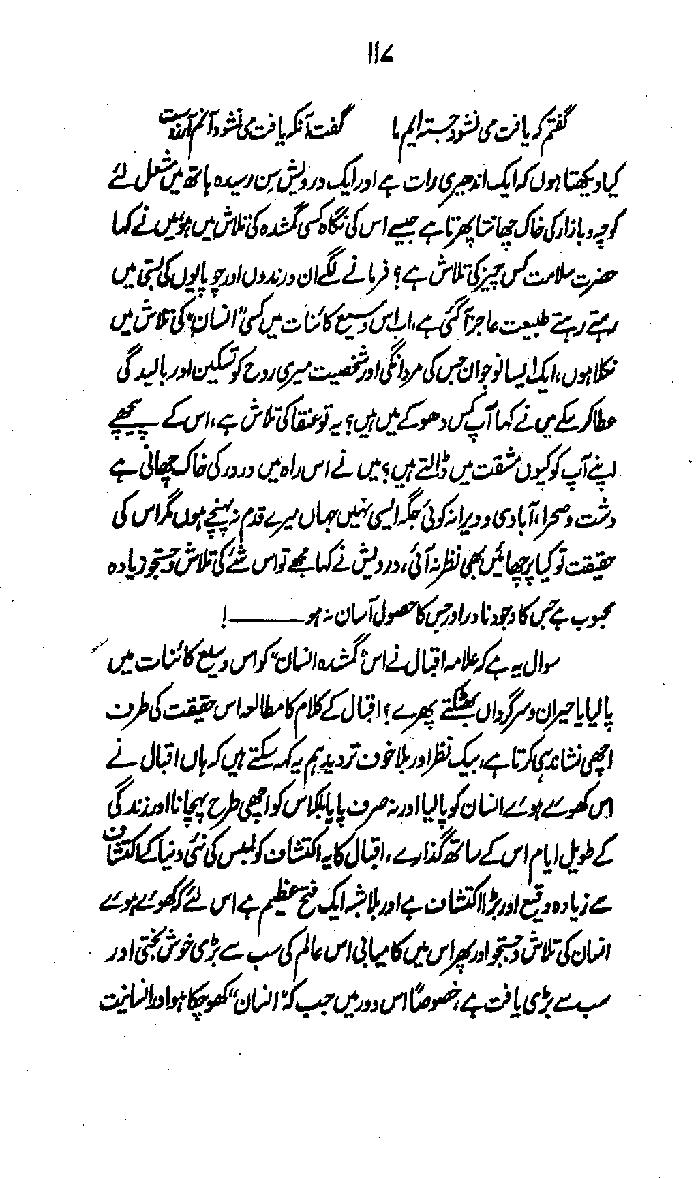 ۱۱۷
گفتم کہ یافت می نشود جستہ ایم ما گفت آنکہ یافت می نشود آنم آرزوست
کیا دیکھتا ہوں کہ ایک اندھیری رات ہے اور ایک درویش سِن رسیدہ ہاتھ میں مشعل لئے
کوچہ و بازار کی خاک چھانتا پھرتا ہے جیسے اس کی نگاہ کسی گمشدہ کی تلاش میں ہو میں نے کہا
حضرت سلامت کس چیز کی تلاش ہے؟ فرمانے لگے ان درندوں اور چوپایوں کی بستی میں
رہتے رہتے طبیعت عاجز آگئی ہے، اب اس وسیع کائنات میں کسی "انسان" کی تلاش میں
نکلا ہوں، ایک ایسا نوجوان جس کی مردانگی اور شخصیت میری روح کو تسکین اور بالیدگی
عطا کرسکے میں نے کہا آپ کس دھوکے میں ہیں؟ یہ تو عنقا کی تلاش ہے، اس کے پیچھے
اپنے آپ کو کیوں مشقت میں ڈالتے ہیں؟ میں نے اس راہ میں در در کی خاک چھانی ہے
دشت و صحرا، آبادی و ویرانہ کوئی جگہ ایسی نہیں جہاں میرے قدم نہ پہنچے ہوں مگر اس کی
حقیقت تو کیا پرچھائیں بھی نظر نہ آئی، درویش نے کہا مجھے تو اس شئے کی تلاش و جستجو زیادہ
محبوب ہے جس کا وجود نادر اور جس کا حصول آسان نہ ہو ــــــــ!
سوال یہ ہے کہ علامہ اقبال نے اس "گمشدہ انسان" کو اس وسیع کائنات میں
پالیا یا حیران و سرگرداں بھٹکتے پھرے؟ اقبال کے کلام کا مطالعہ اس حقیقت کی طرف
اچھی نشاندہی کرتا ہے، بیک نظر اور بلا خوف تردید ہم یہ کہہ سکتے ہیں کہ ہاں اقبال نے
اس کھوے ہوے انسان کو پالیا اور نہ صرف پایا بلکہ اس کو اچھی طرح پہچانا اور زندگی
کے طویل ایام اس کے ساتھ گذارے، اقبال کا یہ اکتشاف کولمبس کی نئی دنیا کے اکتشاف
سے زیادہ وقیع اور بڑا اکتشاف ہے اور بلاشبہ ایک فتح عظیم ہے اس لئے کہ کھوے ہوے
انسان کی تلاش و جستجو اور پھر اس میں کامیابی اس عالم کی سب سے بڑی خوش بختی اور
سب سے بڑی یافت ہے، خصوصاً اس دور میں جب کہ "انسان" کھو چکا ہو اور انسانیت